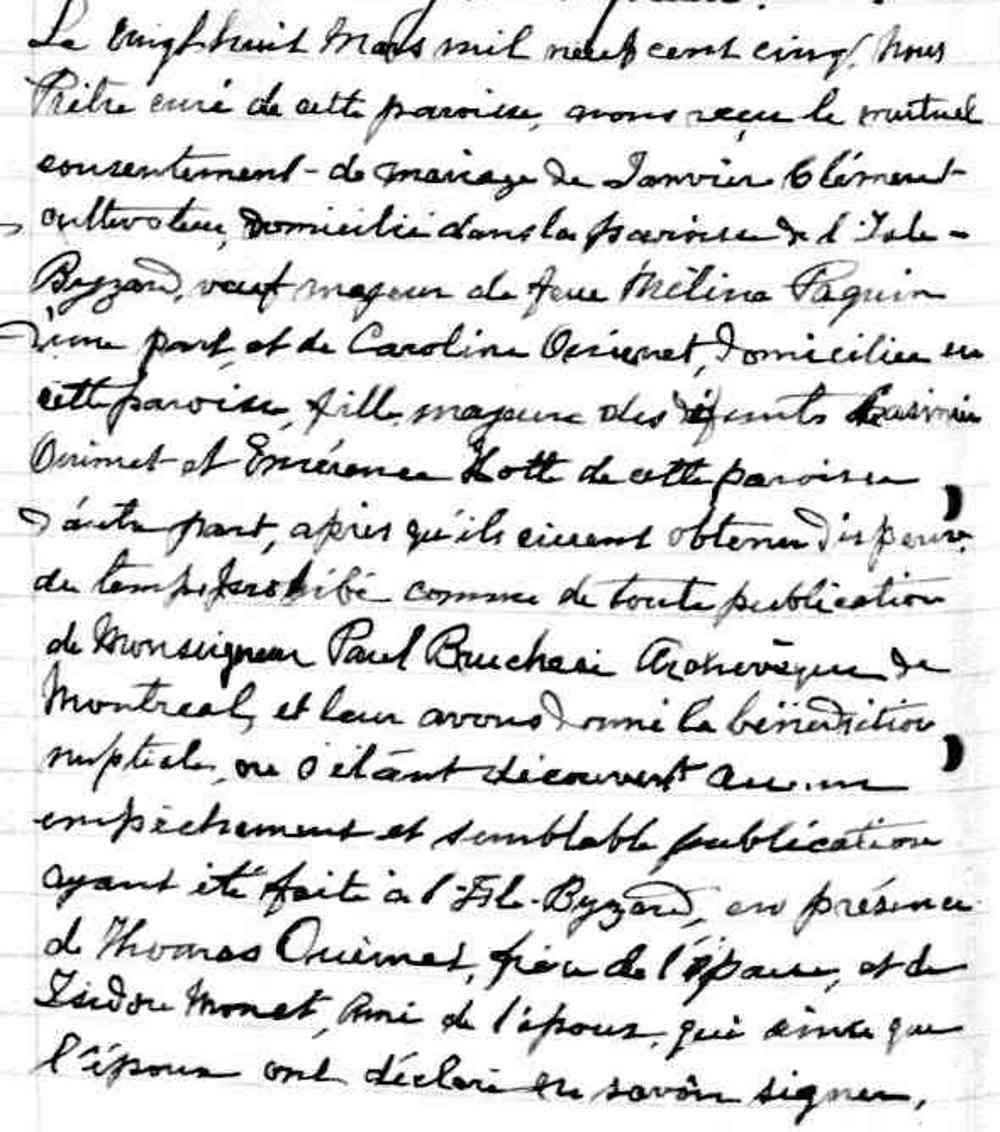 Le vingt huit Mars mil neuf cent cinq, Nous
Prêtre curé de cette paroisse, avons reçu le mutuel
consentement de mariage de Janvier Clément
cultivateur, domicilié dans la paroisse de l'Isle-
Byzard, veuf majeur de feue Mélina Paquin
d'une part, et de Caroline Ouimet, domiciliée en
cette paroisse, fille majeure des défunts Casimir
Ouimet et Emérence Hotte de cette paroisse
d'autre part, après qu'ils eurent obtenu dispense
du temps prohibé comme de toute publication
de Monseigneur Paul Bruchesi Archevêque de
Montreal, et leur avons donné la bénédiction
nuptiale, ne s'étant découvert aucun
empêchement et semblable publication
ayant été faite à l'Isle-Byzard, en présence
de Thomas Ouimet, frère de l'épouse, et de
Isidore Monet, Ami de l'époux, qui ainsi que
l'époux ont déclaré ne savoir signer,